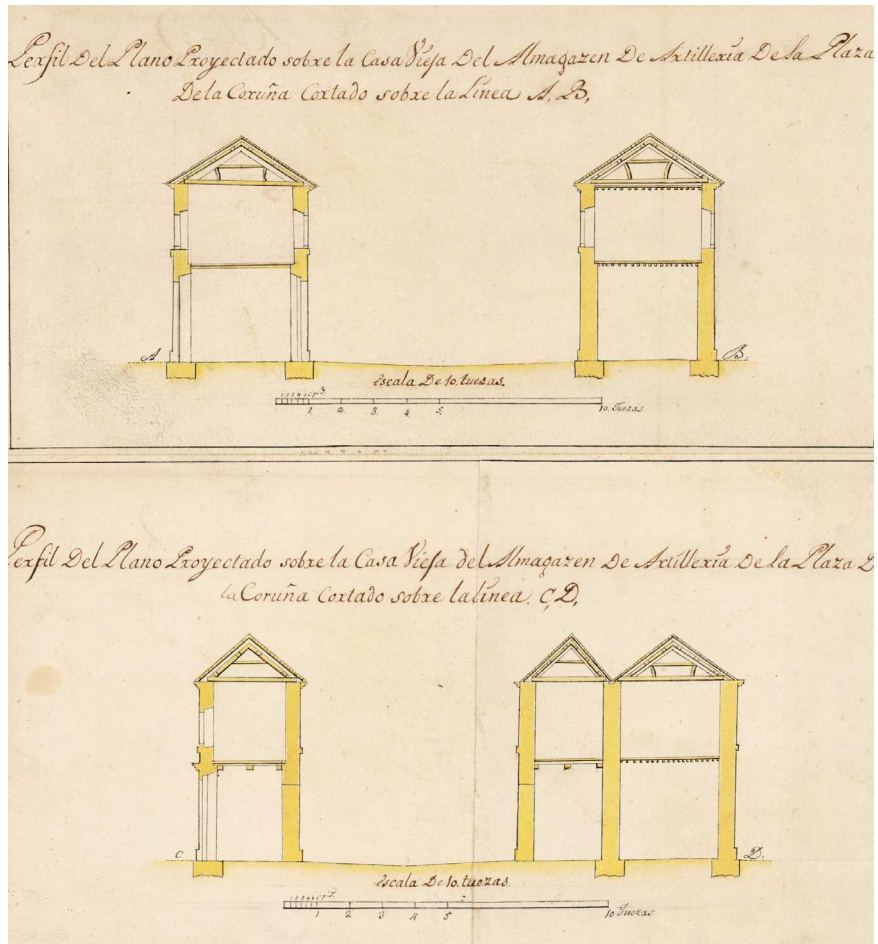 Perfil Del Plano Proyectado sobre la Casa Vieja Del Almagazen De Artillería De la Plaza
De la Coruña Cortado sobre la Linea A, B,
A
B.
Escala De 10. tuezas.
1. 2. 3. 4. 5. 10. Tuezas
Perfil Del Plano Proyectado sobre la Casa Vieja del Almagazen De Artillería De la Plaza D
la Coruña Cortado sobre la línea. C, D,
C
D.
Escala De 10. tuezas.
1 2 3 4 5 10 Tuezas